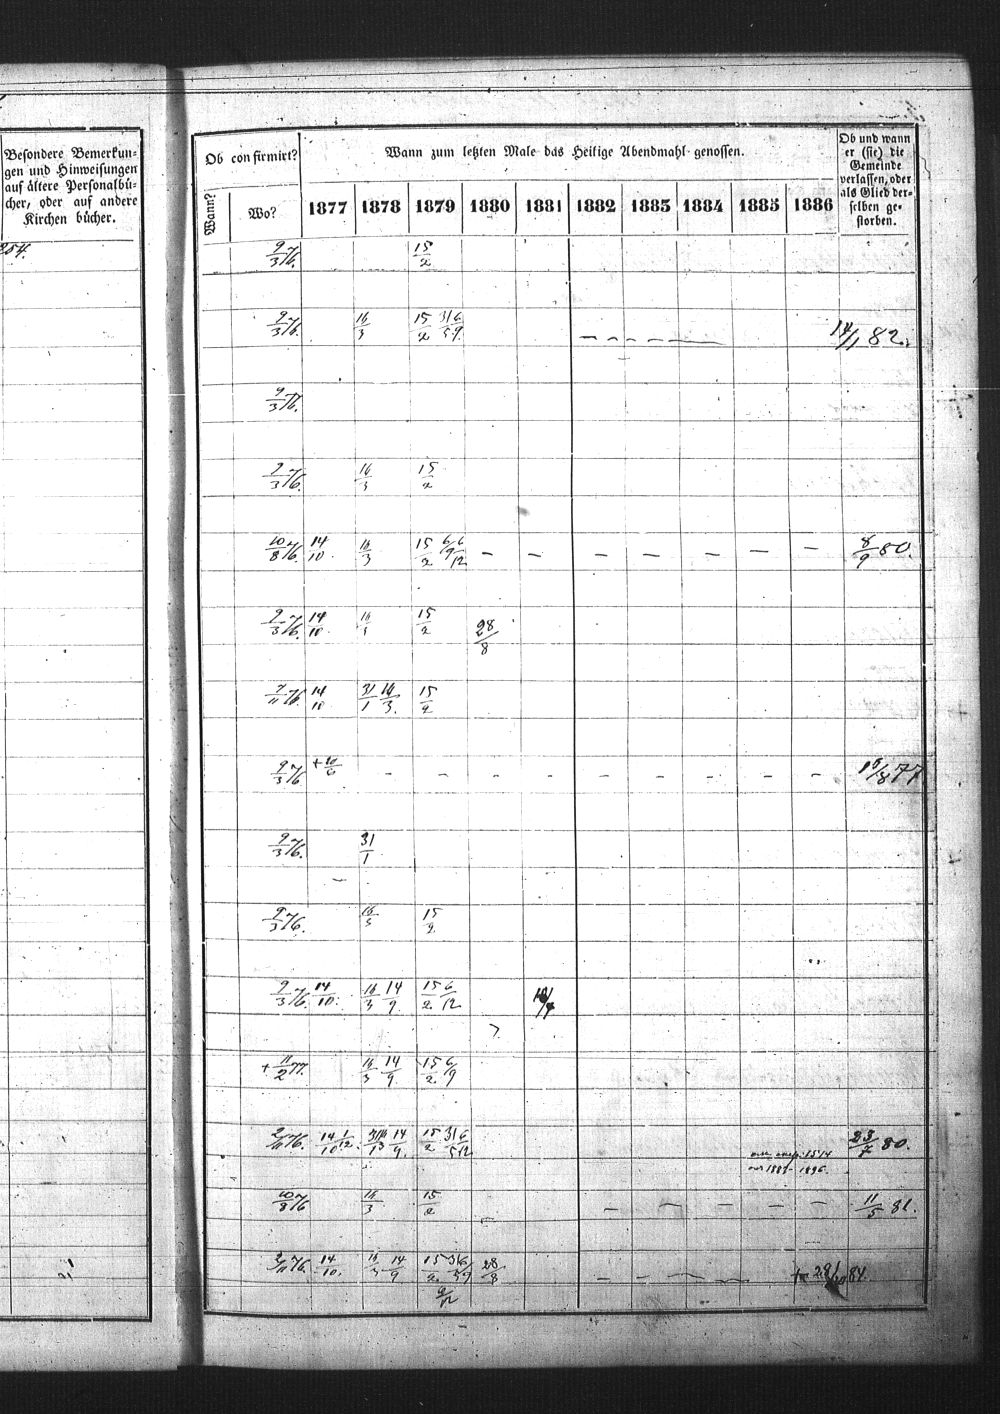 Besondere Bemerkun-
gen und Hinweisungen
auf ältere Personalbü-
cher, oder auf andere
Kirchen bücher.
204.
Ob confirmirt?
Wann?
Wo?
Wann zum letzten Male das Heilige Abendmahl genossen.
1877 1878 1879 1880 1881 1882 1883 1884 1885 1886
Ob und wann
er (sie) die
Gemeinde
verlassen, oder
als Glied der-
selben ge-
storben.
9/3 76. 15/2
9/3 76. 16/3 15/2 31/5 6/9 – – – – 14/1 82.
9/3 76.
9/3 76. 16/3 15/2
10/8 76. 14/10. 16/3 15/2 6/9 6/12 – – – – – – – 8/9 80.
9/3 76. 14/10. 16/3 15/2 28/8
7/11 76. 14/10 31/1 16/3. 15/2
9/3 76 + 10/6 – – – – – – – – – 15/8 77
9/3 76. 31/1
9/3 76. 16/3 15/2.
9/3 76. 14/10. 16/3 14/9. 15/2 6/12
+ 11/2 77. 16/3 14/9. 15/2 6/9
2/11 76. 14/10 1/12. 31/1 16/3 14/9. 15/2 31/5 6/12 23/7 80.
10/8 76 16/3 15/2 – – – – – – 11/5 81.
2/11 76. 14/10. 16/3 14/9 15/2. 31/5 6/9 28/8 – – – –